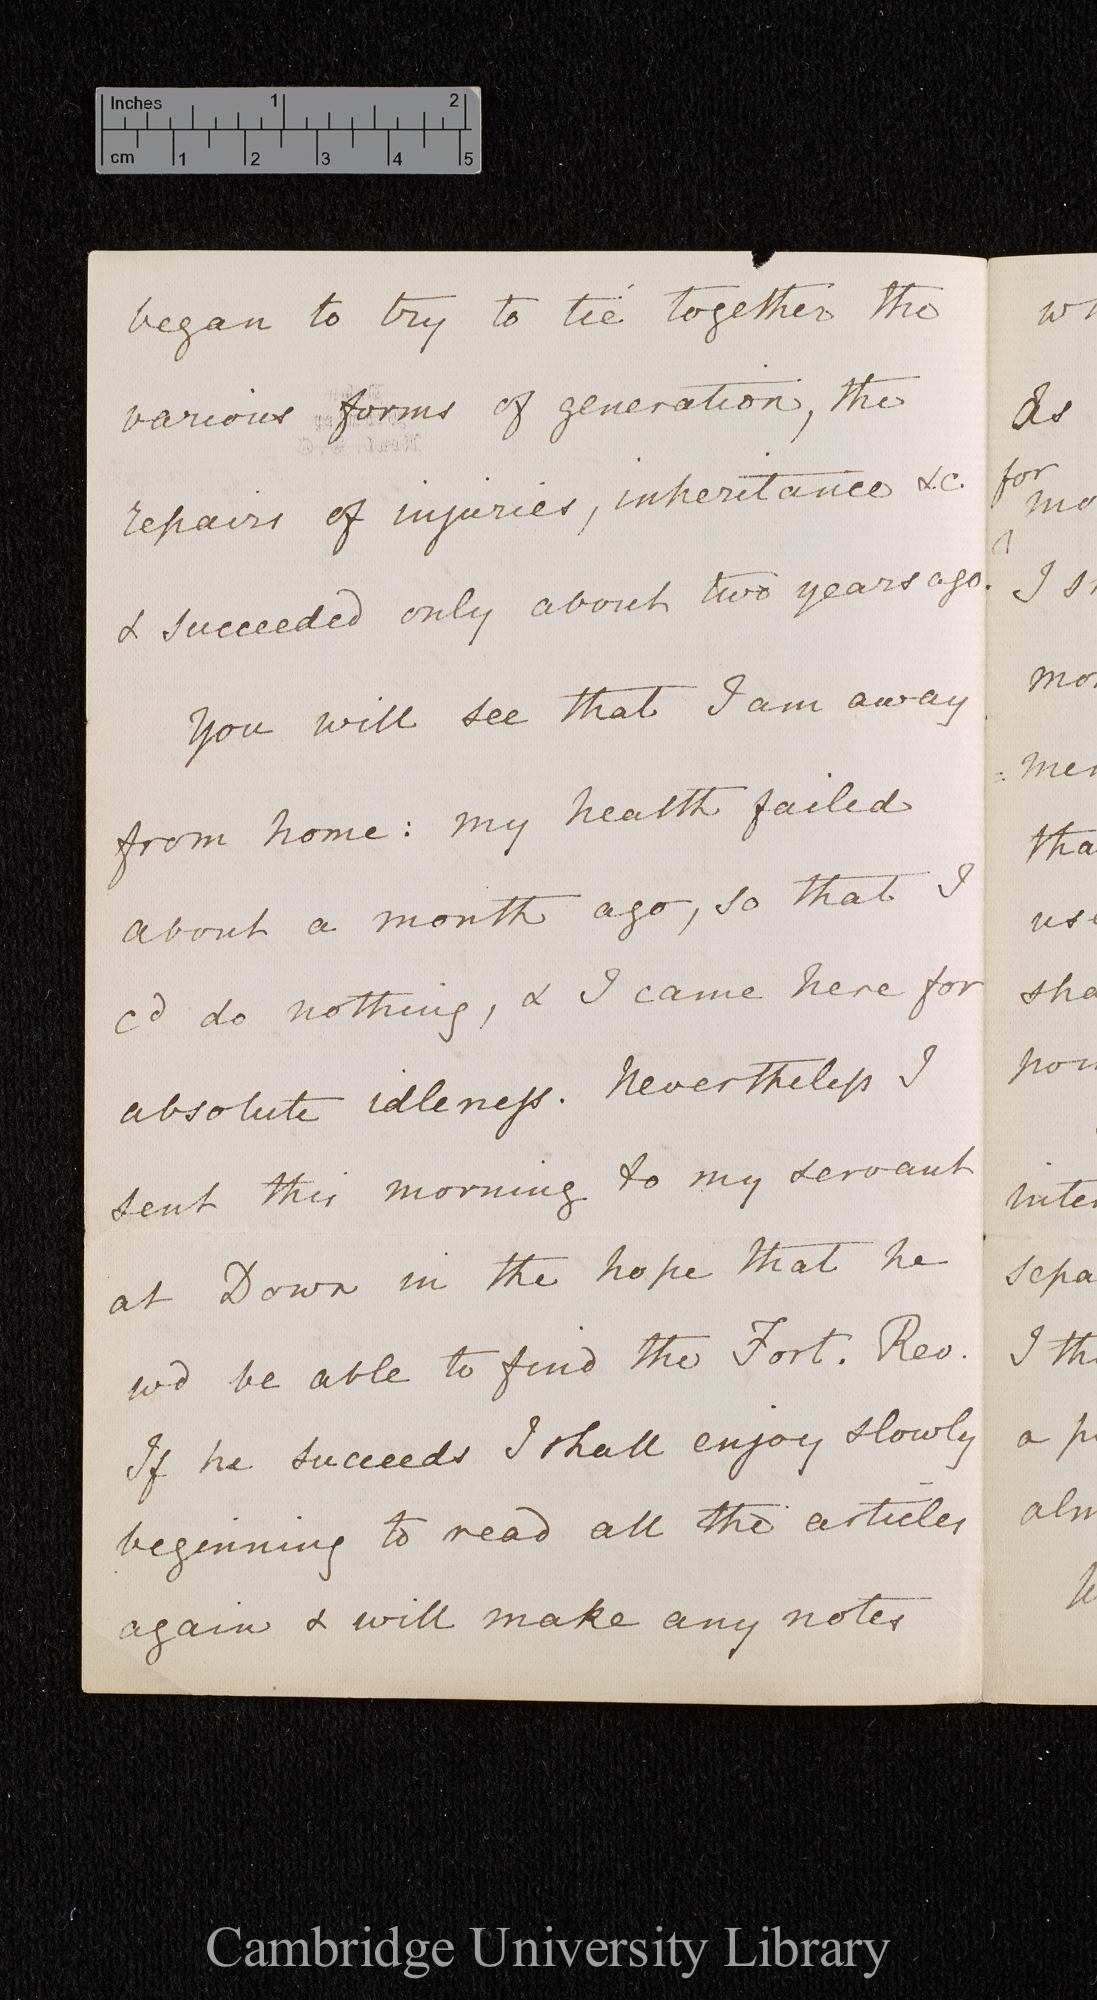 Inches 1 2
cm 1 2 3 4 5
began to try to tie together the
various forms of generation, the
repairs of injuries, inheritance &c.
& succeeded only about two years ago.
You will see that I am away
from home: my health failed
about a month ago, so that I
cd do nothing, & I came here for
absolute idleness. Nevertheless I
sent this morning to my servant
at Down in the hope that he
wd be able to find the Fort. Rev.
If he succeeds I shall enjoy slowly
beginning to read all the articles
again & will make any notes
As
for
I
a
Cambridge University Library